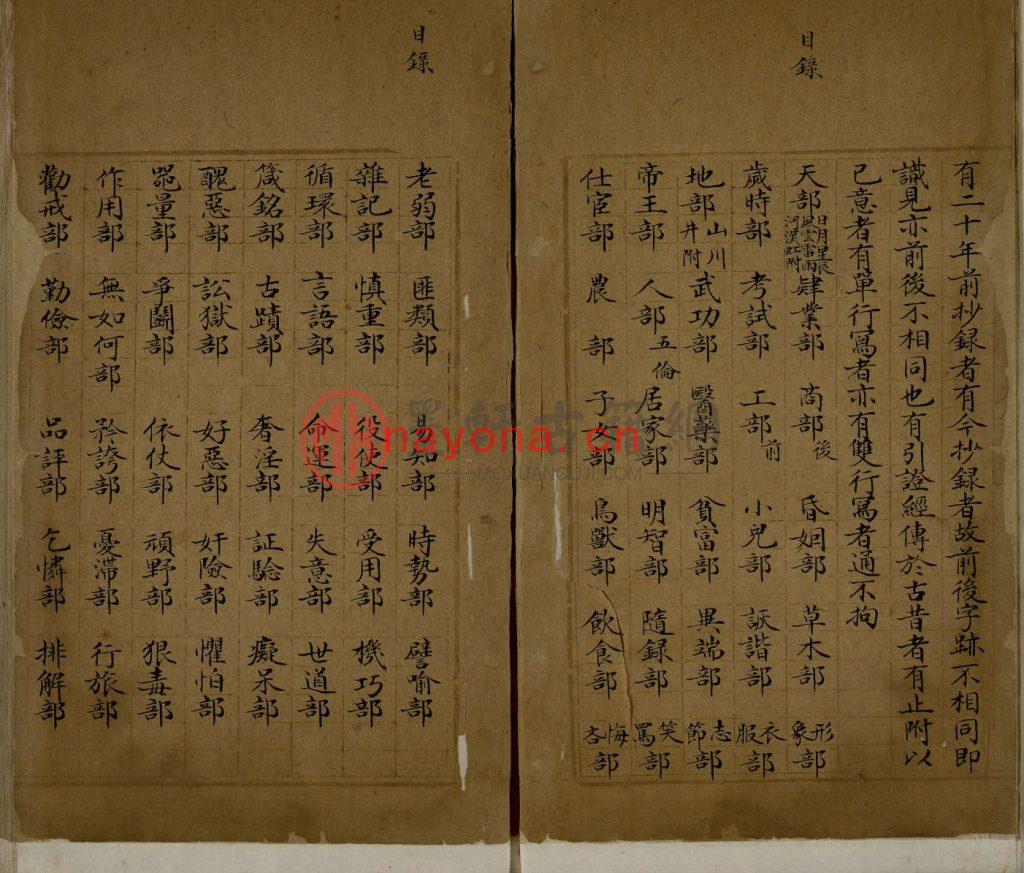 目錄
有二十年前抄録者有今抄録者故前後字跡不相同即
識見亦前後不相同也有引證經傳於古昔者有止附以
己意者有單行寫者亦有雙行寫者通不拘
天部日月星辰風雲雷雨河漢虹附 肆業部 商部後 昏姻部 草木部 形象部
歲時部 考試部 工部前 小兒部 詼諧部 衣服部
地部山川井附 武功部 醫藥部 貧富部 異端部 志節部
帝王部 人部五倫 居家部 明智部 隨録部 笑罵部
仕宦部 農部 子女部 鳥獸部 飲食部 悔吝部
目錄
老弱部 匪類部 易知部 時勢部 譬喻部
雜記部 慎重部 役使部 受用部 機巧部
循環部 言語部 命運部 失意部 世道部
箴銘部 古蹟部 奢淫部 証驗部 癡呆部
醜惡部 訟獄部 好惡部 奸險部 懼怕部
噐量部 爭鬭部 依仗部 頑野部 狠毒部
作用部 無如何部 矜誇部 憂滯部 行旅部
勸戒部 勤儉部 品評部 乞憐部 排解部
墨軒古籍網
nayona.cn
MOXUANGUJI.COM